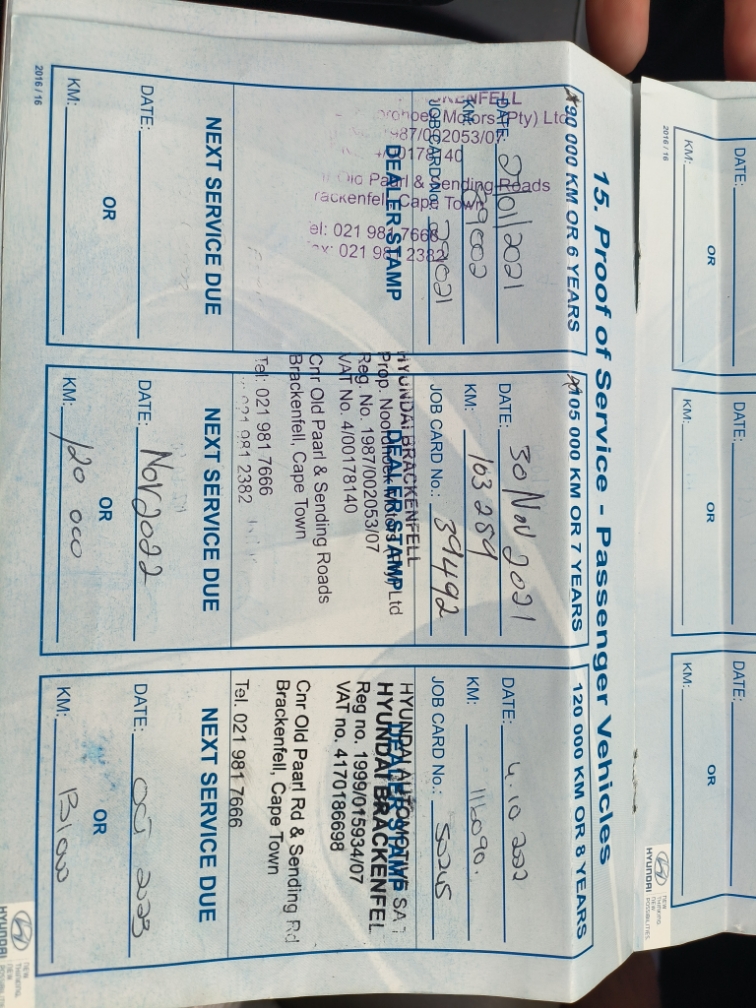 15. Proof of Service - Passenger Vehicles
90 000 KM OR 6 YEARS
DATE: 21/01/2021
KM: 89002
JOB CARD No.:
DEALER STAMP
KENFELL
Motors (Pty) Ltd
987/002053/07
4/00178140
Old Paarl & Sending Roads
rackenfell, Cape Town
el: 021 981 7666
ax: 021 981 2382
NEXT SERVICE DUE
DATE:
OR
KM:
2016 / 16
105 000 KM OR 7 YEARS
DATE: 30 Nov 2021
KM: 103 289
JOB CARD No.: 39492
DEALER STAMP
HYUNDAI BRACKENFELL
Prop. Noordhoek Motors (Pty) Ltd
Reg. No. 1987/002053/07
VAT No. 4/00178140
Cnr Old Paarl & Sending Roads
Brackenfell, Cape Town
Tel: 021 981 7666
021 981 2382
NEXT SERVICE DUE
DATE: Nov 2022
OR
KM: 120 000
120 000 KM OR 8 YEARS
DATE: 4.10.2022
KM: 116090.
JOB CARD No.: 50245
DEALER STAMP
HYUNDAI AUTOMOTIVE SA
HYUNDAI BRACKENFEL
Reg no. 1999/015934/07
VAT no. 4170186698
Cnr Old Paarl Rd & Sending Rd
Brackenfell, Cape Town
Tel. 021 981 7666
NEXT SERVICE DUE
DATE: Oct 2023
OR
KM: 131000
HYUNDAI
NEW
THINKING
NEW
POSSIBILITIES
DATE:
OR
KM:
2016 / 16
DATE:
OR
KM:
DATE:
OR
KM:
HYUNDAI
NEW
THINKING
NEW
POSSIBILITIES